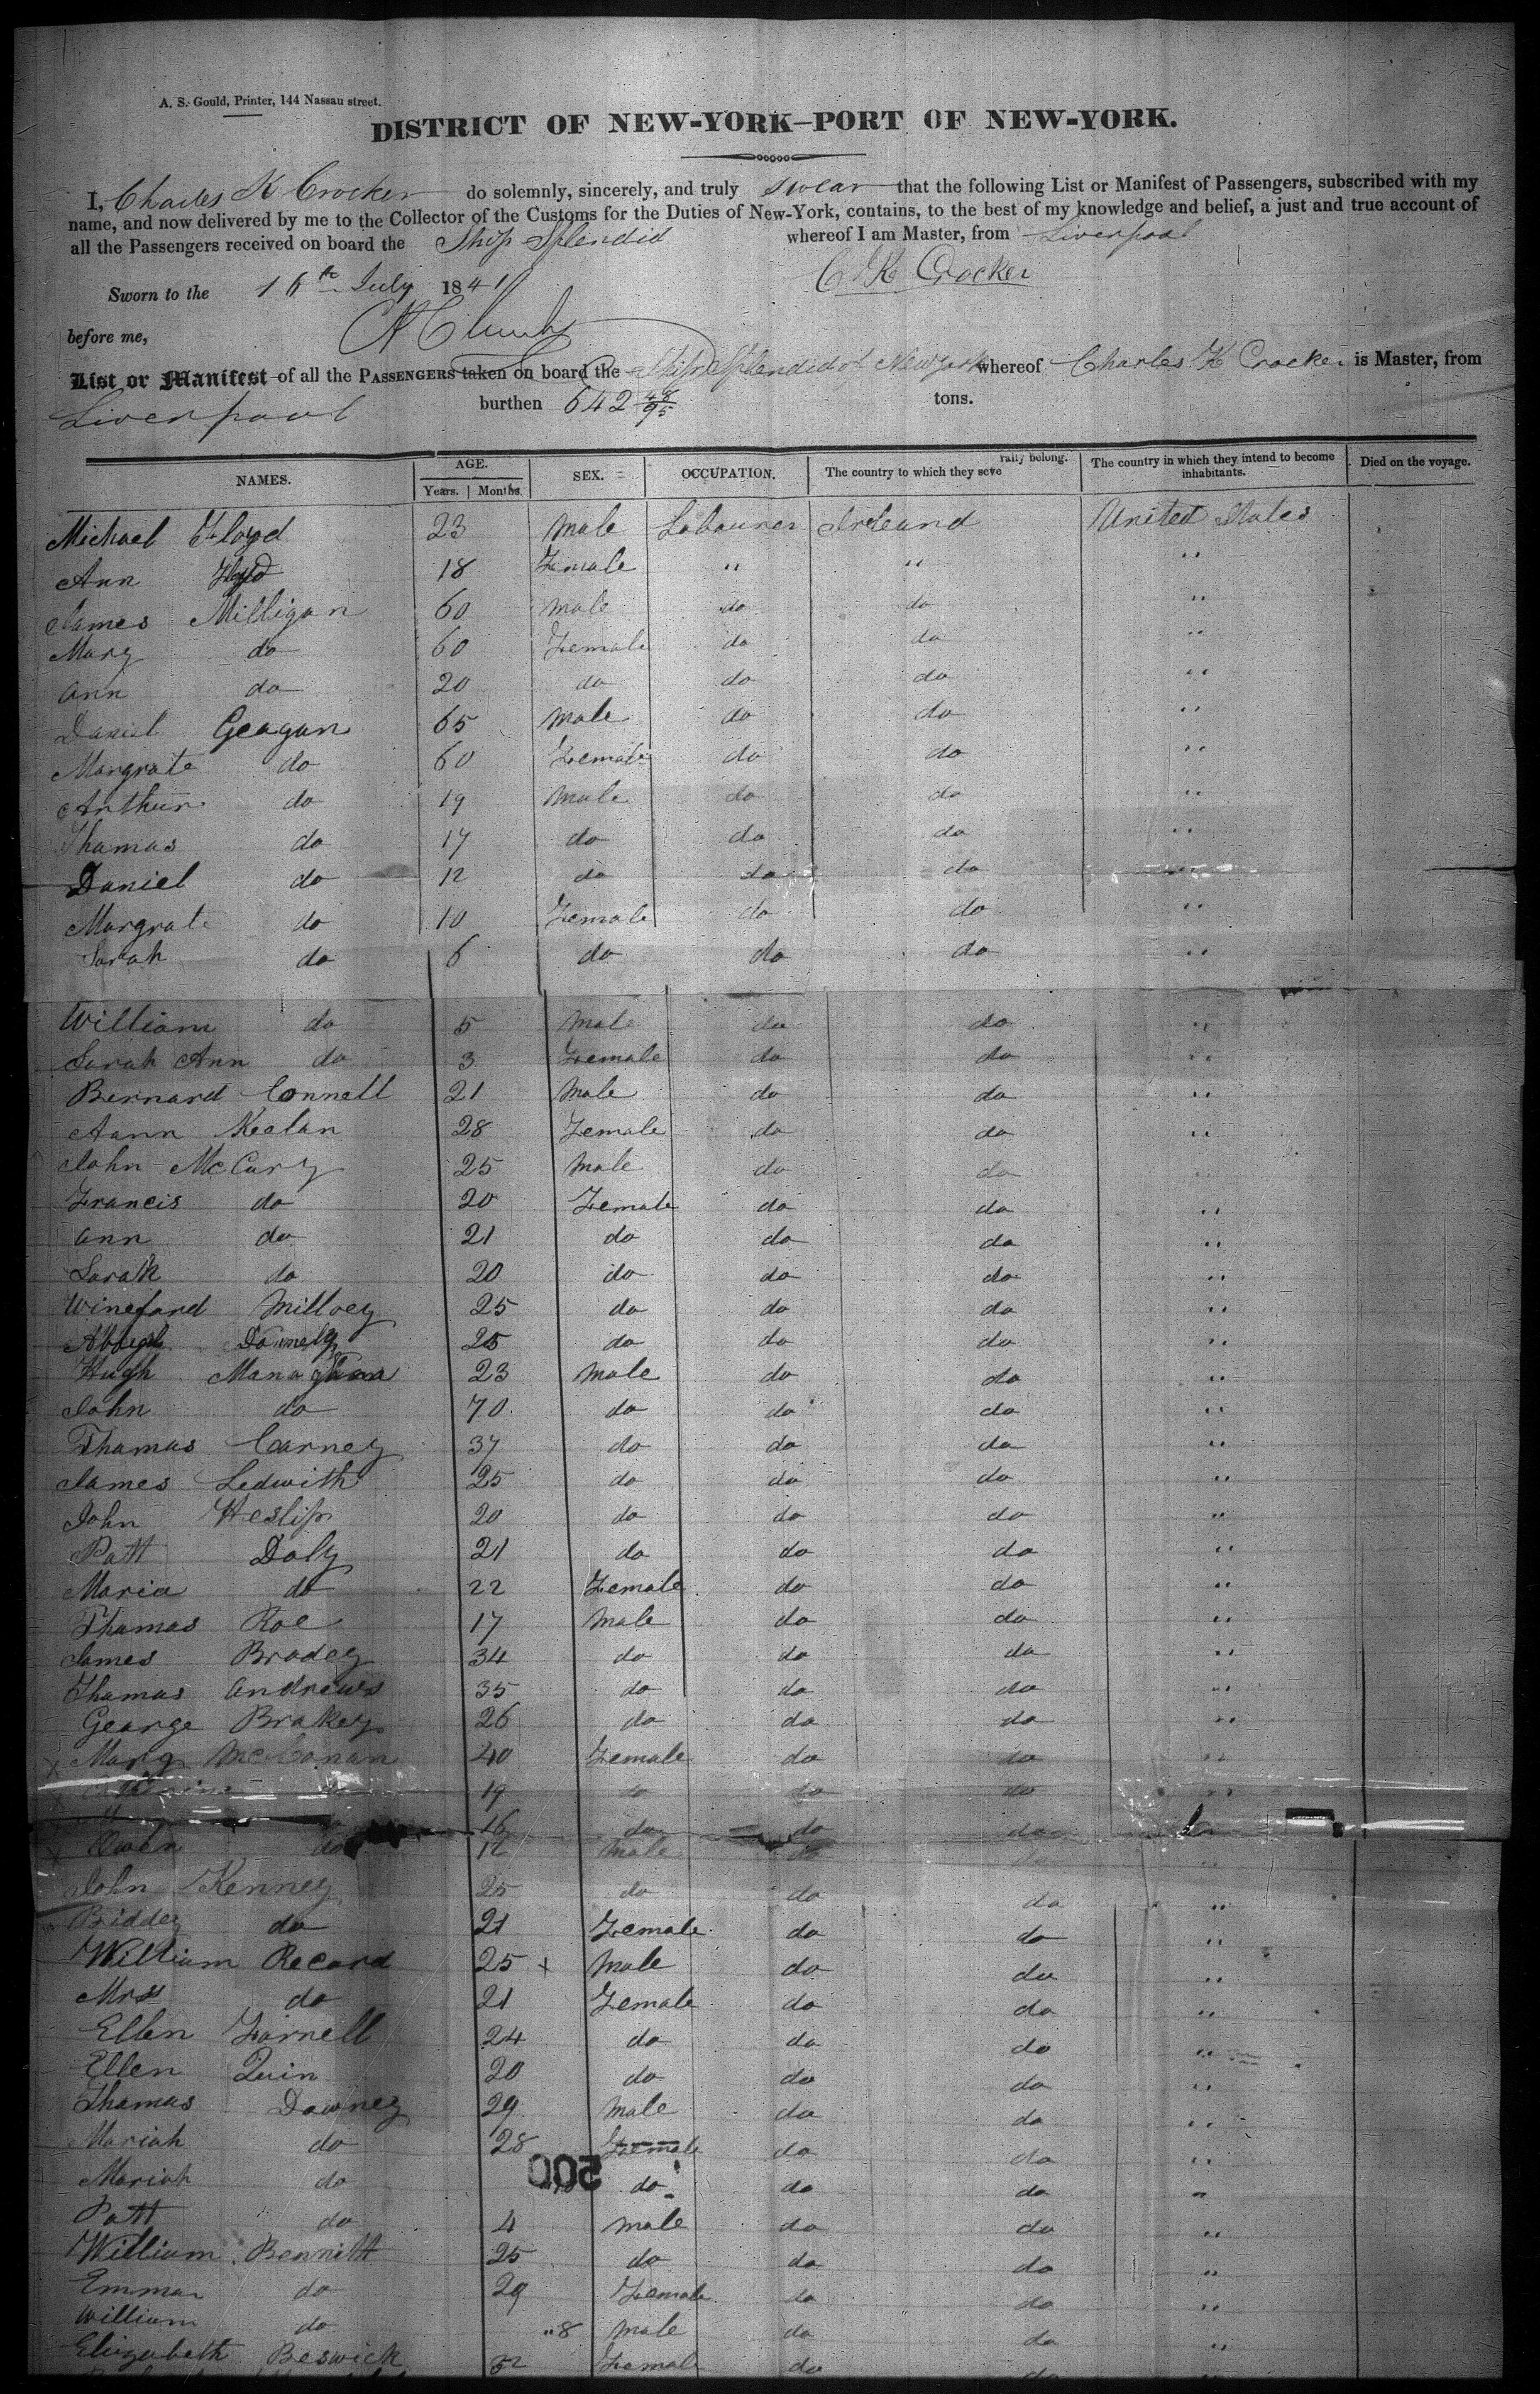 A. S. Gould, Printer, 144 Nassau street.
DISTRICT OF NEW-YORK—PORT OF NEW-YORK.
I, Charles K Crocker do solemnly, sincerely, and truly swear that the following List or Manifest of Passengers, subscribed with my
name, and now delivered by me to the Collector of the Customs for the Duties of New-York, contains, to the best of my knowledge and belief, a just and true account of
all the Passengers received on board the Ship Splendid whereof I am Master, from Liverpool
Sworn to the 16th July 1841 C K Crocker
before me,
List or Manifest of all the PASSENGERS taken on board the Ship Splendid of New York whereof Charles K Crocker is Master, from
Liverpool burthen 642 48/95 tons.
NAMES. AGE. Years. Months. SEX. OCCUPATION. The country to which they severally belong. The country in which they intend to become inhabitants. Died on the voyage.
Michael Floyd 23 Male Labourer Ireland United States
Ann Floyd 18 Female " " "
James Milligan 60 Male do do "
Mary do 60 Female do do "
Ann do 20 do do do "
Daniel Geagan 65 Male do do "
Margrate do 60 Female do do "
Arthur do 19 Male do do "
Thomas do 17 do do do "
Daniel do 12 do do do "
Margrate do 10 Female do do "
Sarah do 6 do do do "
William do 5 Male do do "
Sarah Ann do 3 Female do do "
Bernard Connell 21 Male do do "
Aann Keelan 28 Female do do "
John McCary 25 Male do do
Francis do 20 Female do do "
Ann do 21 do do do "
Sarah do 20 do do do "
Winefard Millvey 25 do do do "
Donnely 25 do do do "
Hugh 23 Male do do "
John do 70 do do do "
Thomas Carney 37 do do do "
James Ledwith 25 do do do "
John Heslip 20 do do do "
Patt Daly 21 do do do "
Maria do 22 Female do do "
Thomas Roe 17 Male do do "
James Bradey 34 do do do "
Thomas Andrews 35 do do do "
George Brakey 26 do do do "
X Mary McConan 40 Female do do "
Catharine do 19 do do do "
16 do do do
X Owen do 12 Male do do "
John Kenney 25 do do do "
Biddey do 21 Female do do "
William Record 25 x Male do do "
Mrs do 21 Female do do "
Ellen Farnell 24 do do do "
Ellen Quin 20 do do do "
Thomas Downey 29 Male do do "
Mariah do 28 Female do do "
500
Mariah do do do do "
Patt do 4 Male do do "
William Bennitt 25 do do do "
Emma do 29 Female do do "
William do " 8 Male do do "
Elizabeth Beswick 32 Female do do